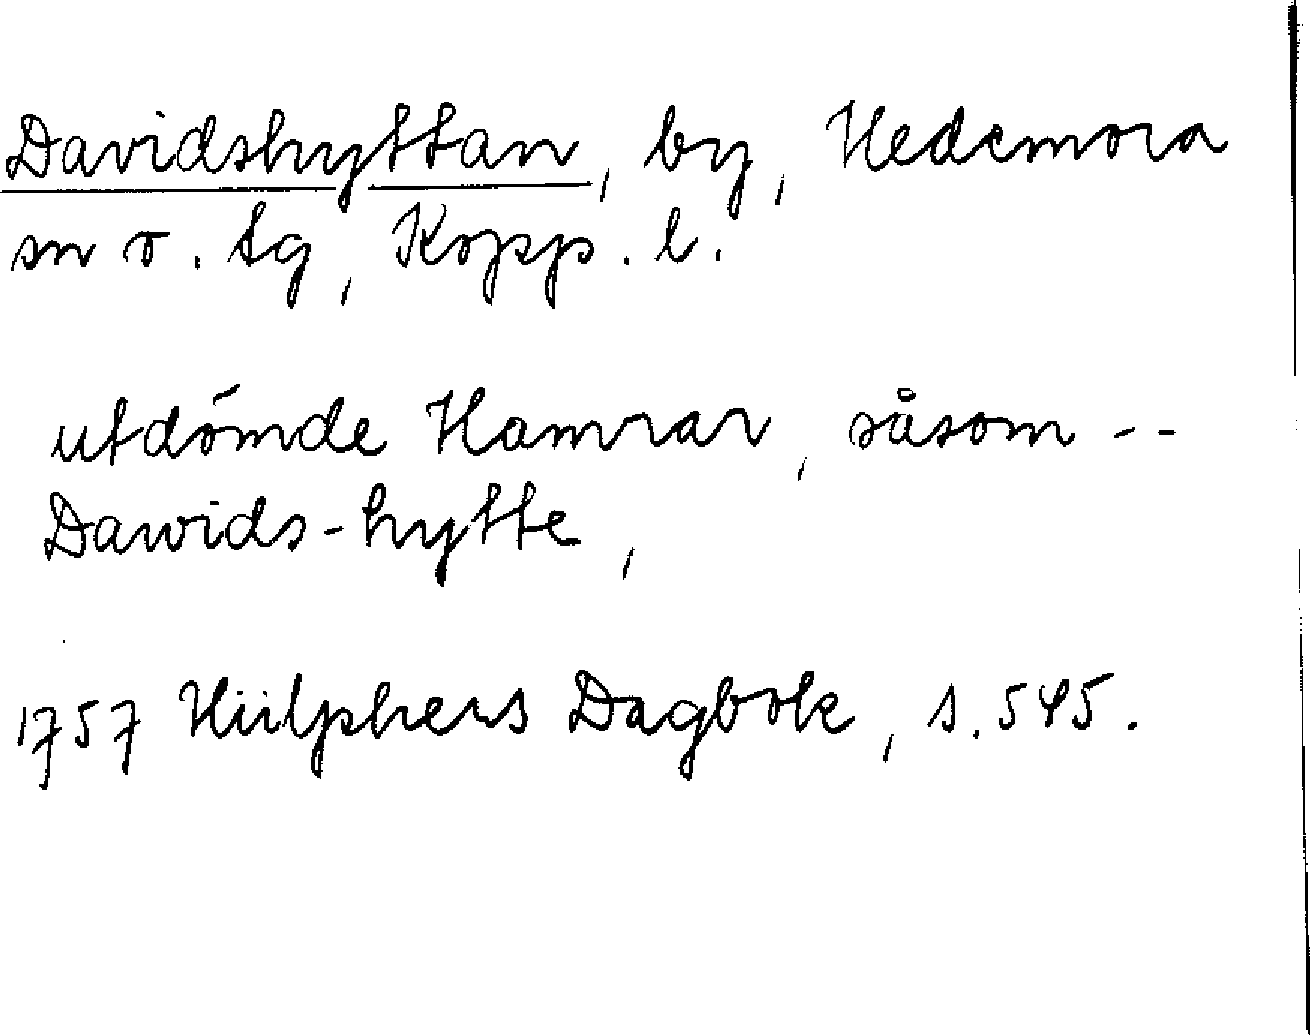 Davidshyttan, by, Hedemora
sn o. tg, Kopp. l.
utdömde Hamrar, såsom --
Dawids-hytte,
1757 Hülphers Dagbok, s. 545.